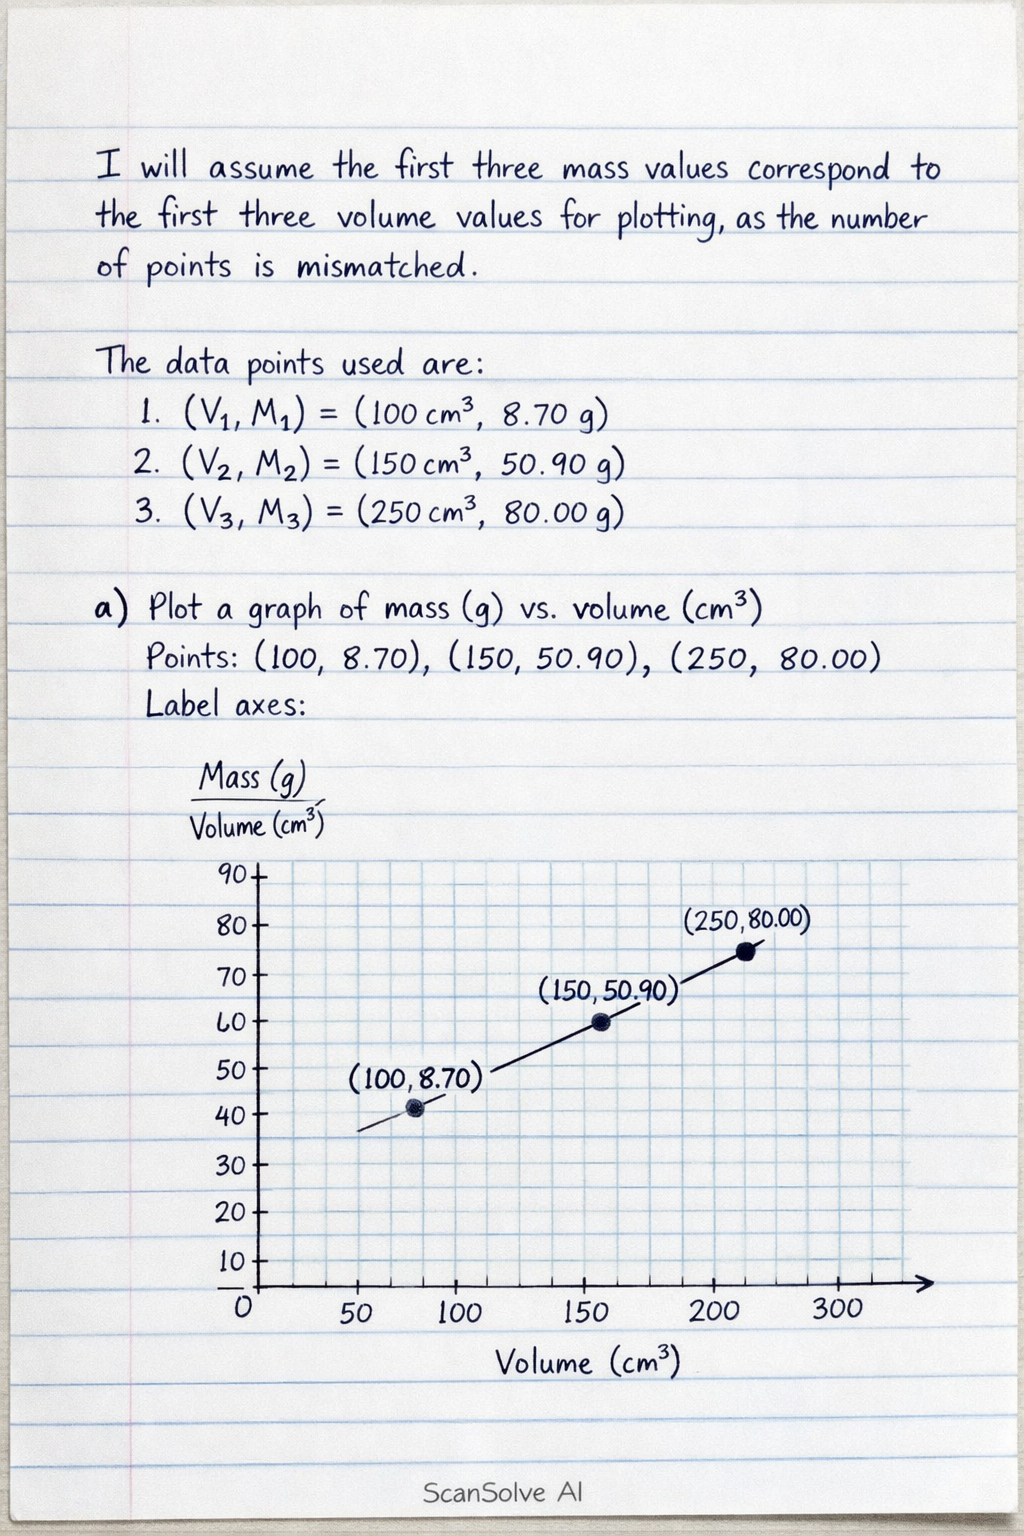 I will assume the first three mass values correspond to
the first three volume values for plotting, as the number
of points is mismatched.
The data points used are:
1. (V₁, M₁) = (100 cm³, 8.70 g)
2. (V₂, M₂) = (150 cm³, 50.90 g)
3. (V₃, M₃) = (250 cm³, 80.00 g)
a) Plot a graph of mass (g) vs. volume (cm³)
Points: (100, 8.70), (150, 50.90), (250, 80.00)
Label axes:
Mass (g)
Volume (cm³)
90
80
(250,80.00)
70
(150,50.90)
60
50
(100,8.70)
40
30
20
10
0 50 100 150 200 300
Volume (cm³)
ScanSolve AI